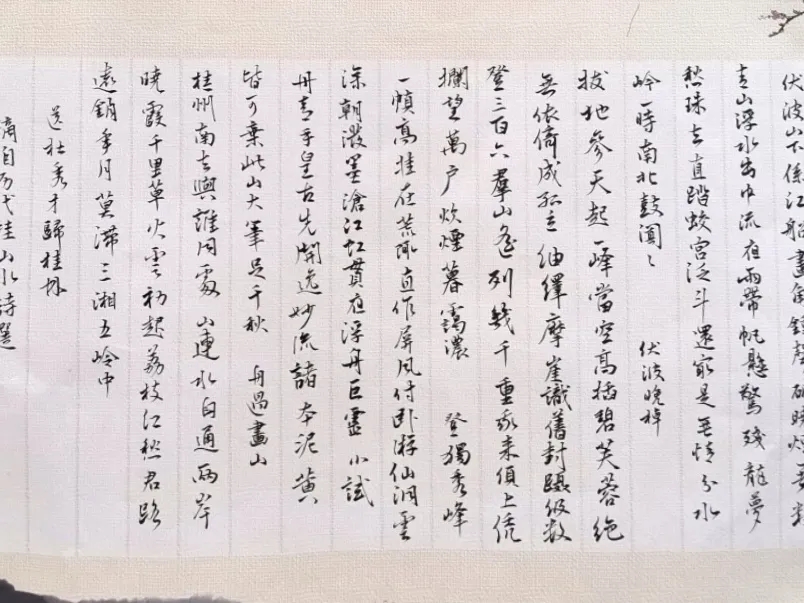 伏波山下系江船畫角鐘聲破曉煙
青山浮水出中流夜雨帶帆懸驚殘龍夢
愁珠去直踏蛟宮泛斗還最是無情分水
岭一時南北鼓闐〻 伏波晚棹
拔地參天起一峰當空高插碧芙蓉絕
無依倚成孤立細繹摩崖識舊封躡級數
登三百六群山遙列幾千重我來頂上凭
攔望萬戶炊煙暮靄濃 登獨秀峰
一幀高挂在荒陬直作屏風付卧游仙洞雲
深朝潑墨滄江虹貫夜浮舟巨靈小試
丹青手皇古先開逸妙流諸本泥黃
皆可棄此山大筆足千秋 舟過畫山
桂州南去與誰同處山連水自通兩岸
曉霞千里草火雲初起荔枝江愁君路
遠銷年月莫滯三湘五岭中
送杜秀才歸桂林
摘自历代桂山水詩選